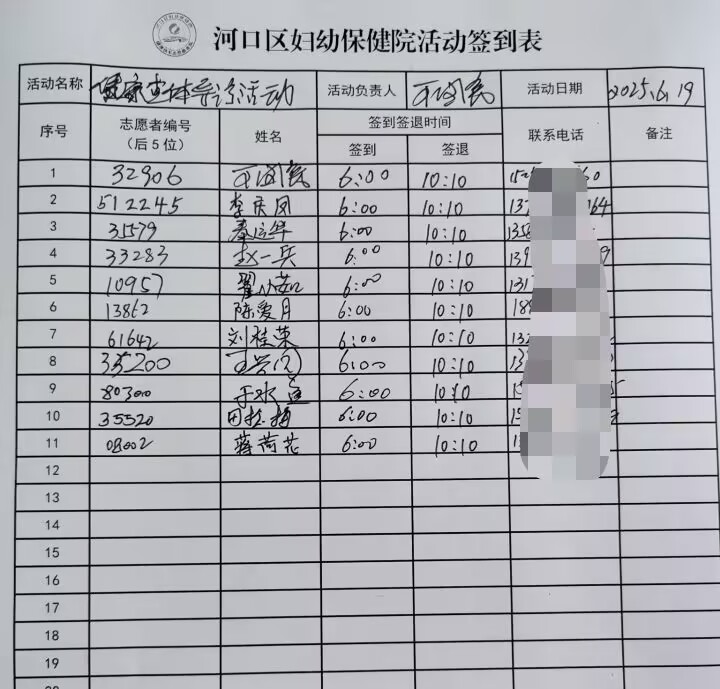 河口区妇幼保健院活动签到表
活动名称 健康查体导诊活动 活动负责人 活动日期 2025.6.19
序号 志愿者编号（后5位） 姓名 签到签退时间 签到 签退 联系电话 备注
1 32906 6:00 10:10
2 512245 李庆凤 6:00 10:10
3 31579 秦运华 6:00 10:10
4 33283 赵一兵 6:00 10:10
5 10957 6:00 10:10
6 13862 陈爱月 6:00 10:10
7 61642 刘桂荣 6:00 10:10
8 35200 6:00 10:10
9 80300 6:00 10:10
10 35520 6:00 10:10
11 08002 蒋荷花 6:00 10:10
12
13
14
15
16
17
18
19